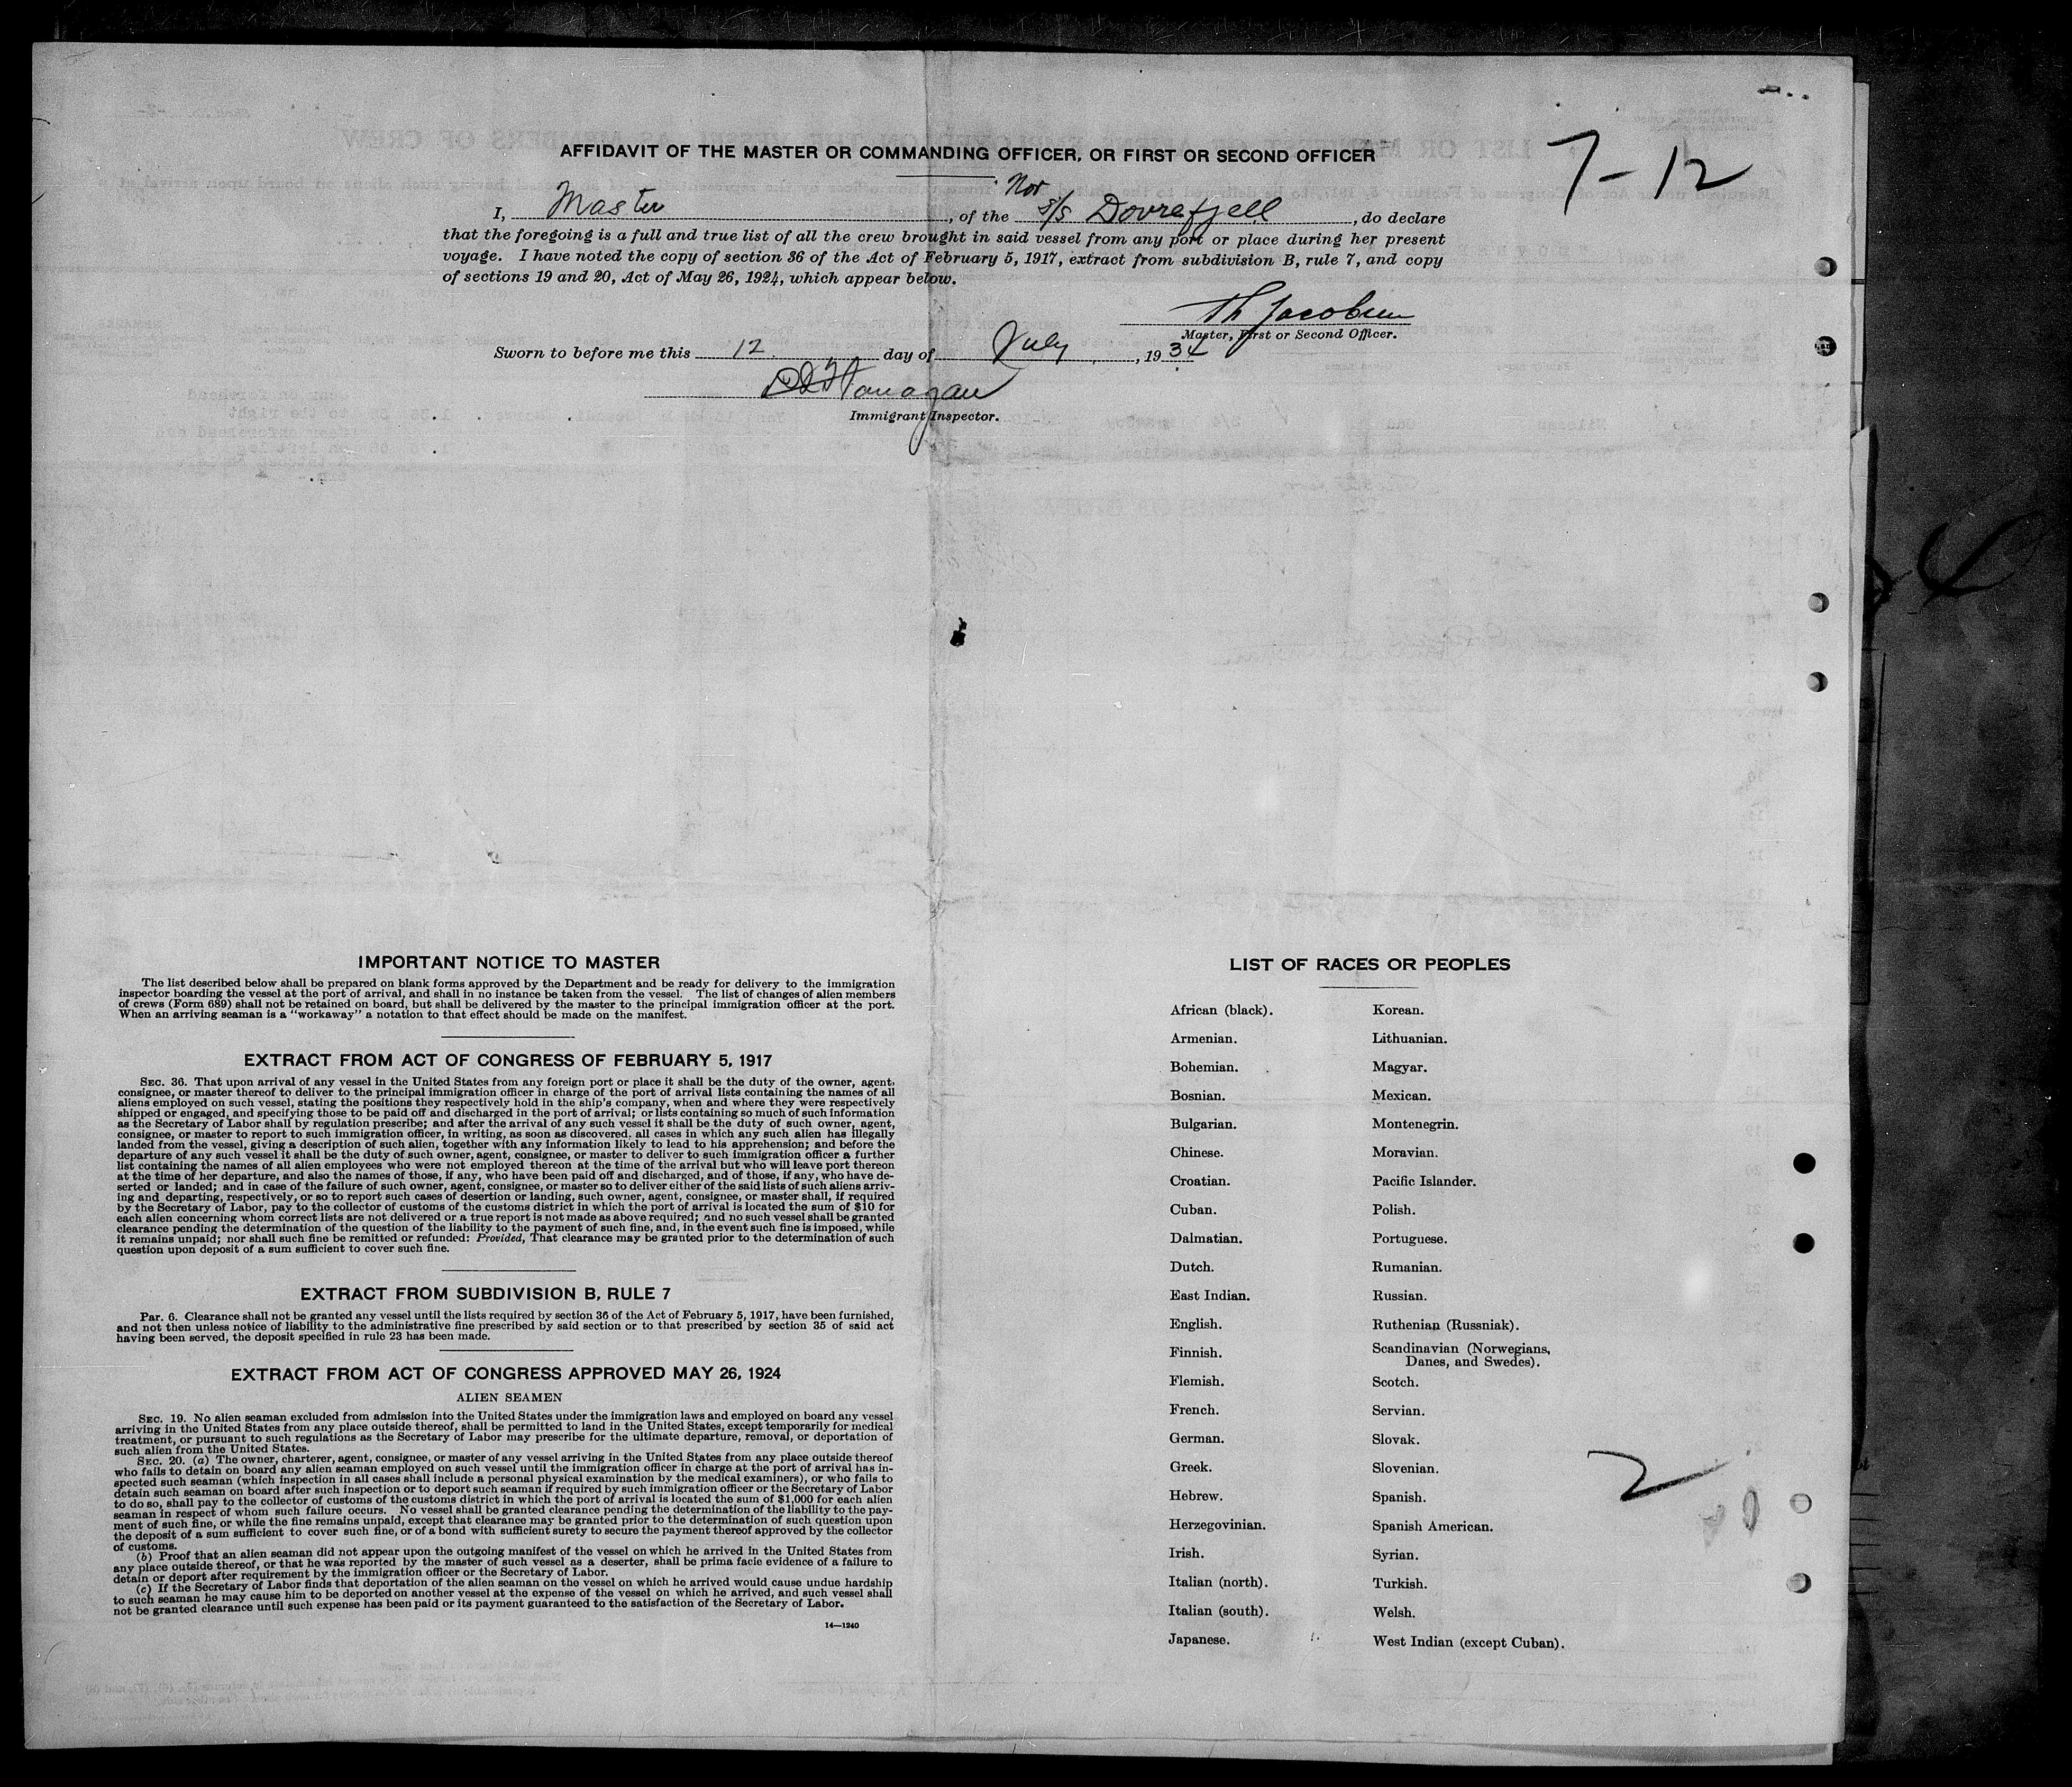 7-12
AFFIDAVIT OF THE MASTER OR COMMANDING OFFICER, OR FIRST OR SECOND OFFICER
Nor
I, Master, of the s/s Dovrefjell, do declare
that the foregoing is a full and true list of all the crew brought in said vessel from any port or place during her present
voyage. I have noted the copy of section 36 of the Act of February 5, 1917, extract from subdivision B, rule 7, and copy
of sections 19 and 20, Act of May 26, 1924, which appear below.
Th Jacobsen
Master, First or Second Officer.
Sworn to before me this 12 day of July, 1934
Flanagan
Immigrant Inspector.
IMPORTANT NOTICE TO MASTER
The list described below shall be prepared on blank forms approved by the Department and be ready for delivery to the immigration
inspector boarding the vessel at the port of arrival, and shall in no instance be taken from the vessel. The list of changes of alien members
of crews (Form 689) shall not be retained on board, but shall be delivered by the master to the principal immigration officer at the port.
When an arriving seaman is a "workaway" a notation to that effect should be made on the manifest.
EXTRACT FROM ACT OF CONGRESS OF FEBRUARY 5, 1917
SEC. 36. That upon arrival of any vessel in the United States from any foreign port or place it shall be the duty of the owner, agent,
consignee, or master thereof to deliver to the principal immigration officer in charge of the port of arrival lists containing the names of all
aliens employed on such vessel, stating the positions they respectively hold in the ship's company, when and where they were respectively
shipped or engaged, and specifying those to be paid off and discharged in the port of arrival; or lists containing so much of such information
as the Secretary of Labor shall by regulation prescribe; and after the arrival of any such vessel it shall be the duty of such owner, agent,
consignee, or master to report to such immigration officer, in writing, as soon as discovered, all cases in which any such alien has illegally
landed from the vessel, giving a description of such alien, together with any information likely to lead to his apprehension; and before the
departure of any such vessel it shall be the duty of such owner, agent, consignee, or master to deliver to such immigration officer a further
list containing the names of all alien employees who were not employed thereon at the time of the arrival but who will leave port thereon
at the time of her departure, and also the names of those, if any, who have been paid off and discharged, and of those, if any, who have de-
serted or landed; and in case of the failure of such owner, agent, consignee, or master so to deliver either of the said lists of such aliens arriv-
ing and departing, respectively, or so to report such cases of desertion or landing, such owner, agent, consignee, or master shall, if required
by the Secretary of Labor, pay to the collector of customs of the customs district in which the port of arrival is located the sum of $10 for
each alien concerning whom correct lists are not delivered or a true report is not made as above required; and no such vessel shall be granted
clearance pending the determination of the question of the liability to the payment of such fine, and, in the event such fine is imposed, while
it remains unpaid; nor shall such fine be remitted or refunded: Provided, That clearance may be granted prior to the determination of such
question upon deposit of a sum sufficient to cover such fine.
EXTRACT FROM SUBDIVISION B, RULE 7
Par. 6. Clearance shall not be granted any vessel until the lists required by section 36 of the Act of February 5, 1917, have been furnished,
and not then unless notice of liability to the administrative fine prescribed by said section or to that prescribed by section 35 of said act
having been served, the deposit specified in rule 23 has been made.
EXTRACT FROM ACT OF CONGRESS APPROVED MAY 26, 1924
ALIEN SEAMEN
SEC. 19. No alien seaman excluded from admission into the United States under the immigration laws and employed on board any vessel
arriving in the United States from any place outside thereof, shall be permitted to land in the United States, except temporarily for medical
treatment, or pursuant to such regulations as the Secretary of Labor may prescribe for the ultimate departure, removal, or deportation of
such alien from the United States.
SEC. 20. (a) The owner, charterer, agent, consignee, or master of any vessel arriving in the United States from any place outside thereof
who fails to detain on board any alien seaman employed on such vessel until the immigration officer in charge at the port of arrival has in-
spected such seaman (which inspection in all cases shall include a personal physical examination by the medical examiners), or who fails to
detain such seaman on board after such inspection or to deport such seaman if required by such immigration officer or the Secretary of Labor
to do so, shall pay to the collector of customs of the customs district in which the port of arrival is located the sum of $1,000 for each alien
seaman in respect of whom such failure occurs. No vessel shall be granted clearance pending the determination of the liability to the pay-
ment of such fine, or while the fine remains unpaid, except that clearance may be granted prior to the determination of such question upon
the deposit of a sum sufficient to cover such fine, or of a bond with sufficient surety to secure the payment thereof approved by the collector
of customs.
(b) Proof that an alien seaman did not appear upon the outgoing manifest of the vessel on which he arrived in the United States from
any place outside thereof, or that he was reported by the master of such vessel as a deserter, shall be prima facie evidence of a failure to
detain or deport after requirement by the immigration officer or the Secretary of Labor.
(c) If the Secretary of Labor finds that deportation of the alien seaman on the vessel on which he arrived would cause undue hardship
to such seaman he may cause him to be deported on another vessel at the expense of the vessel on which he arrived, and such vessel shall
not be granted clearance until such expense has been paid or its payment guaranteed to the satisfaction of the Secretary of Labor.
14—1240
LIST OF RACES OR PEOPLES
African (black).
Armenian.
Bohemian.
Bosnian.
Bulgarian.
Chinese.
Croatian.
Cuban.
Dalmatian.
Dutch.
East Indian.
English.
Finnish.
Flemish.
French.
German.
Greek.
Hebrew.
Herzegovinian.
Irish.
Italian (north).
Italian (south).
Japanese.
Korean.
Lithuanian.
Magyar.
Mexican.
Montenegrin.
Moravian.
Pacific Islander.
Polish.
Portuguese.
Rumanian.
Russian.
Ruthenian (Russniak).
Scandinavian (Norwegians,
Danes, and Swedes).
Scotch.
Servian.
Slovak.
Slovenian.
Spanish.
Spanish American.
Syrian.
Turkish.
Welsh.
West Indian (except Cuban).
2
4